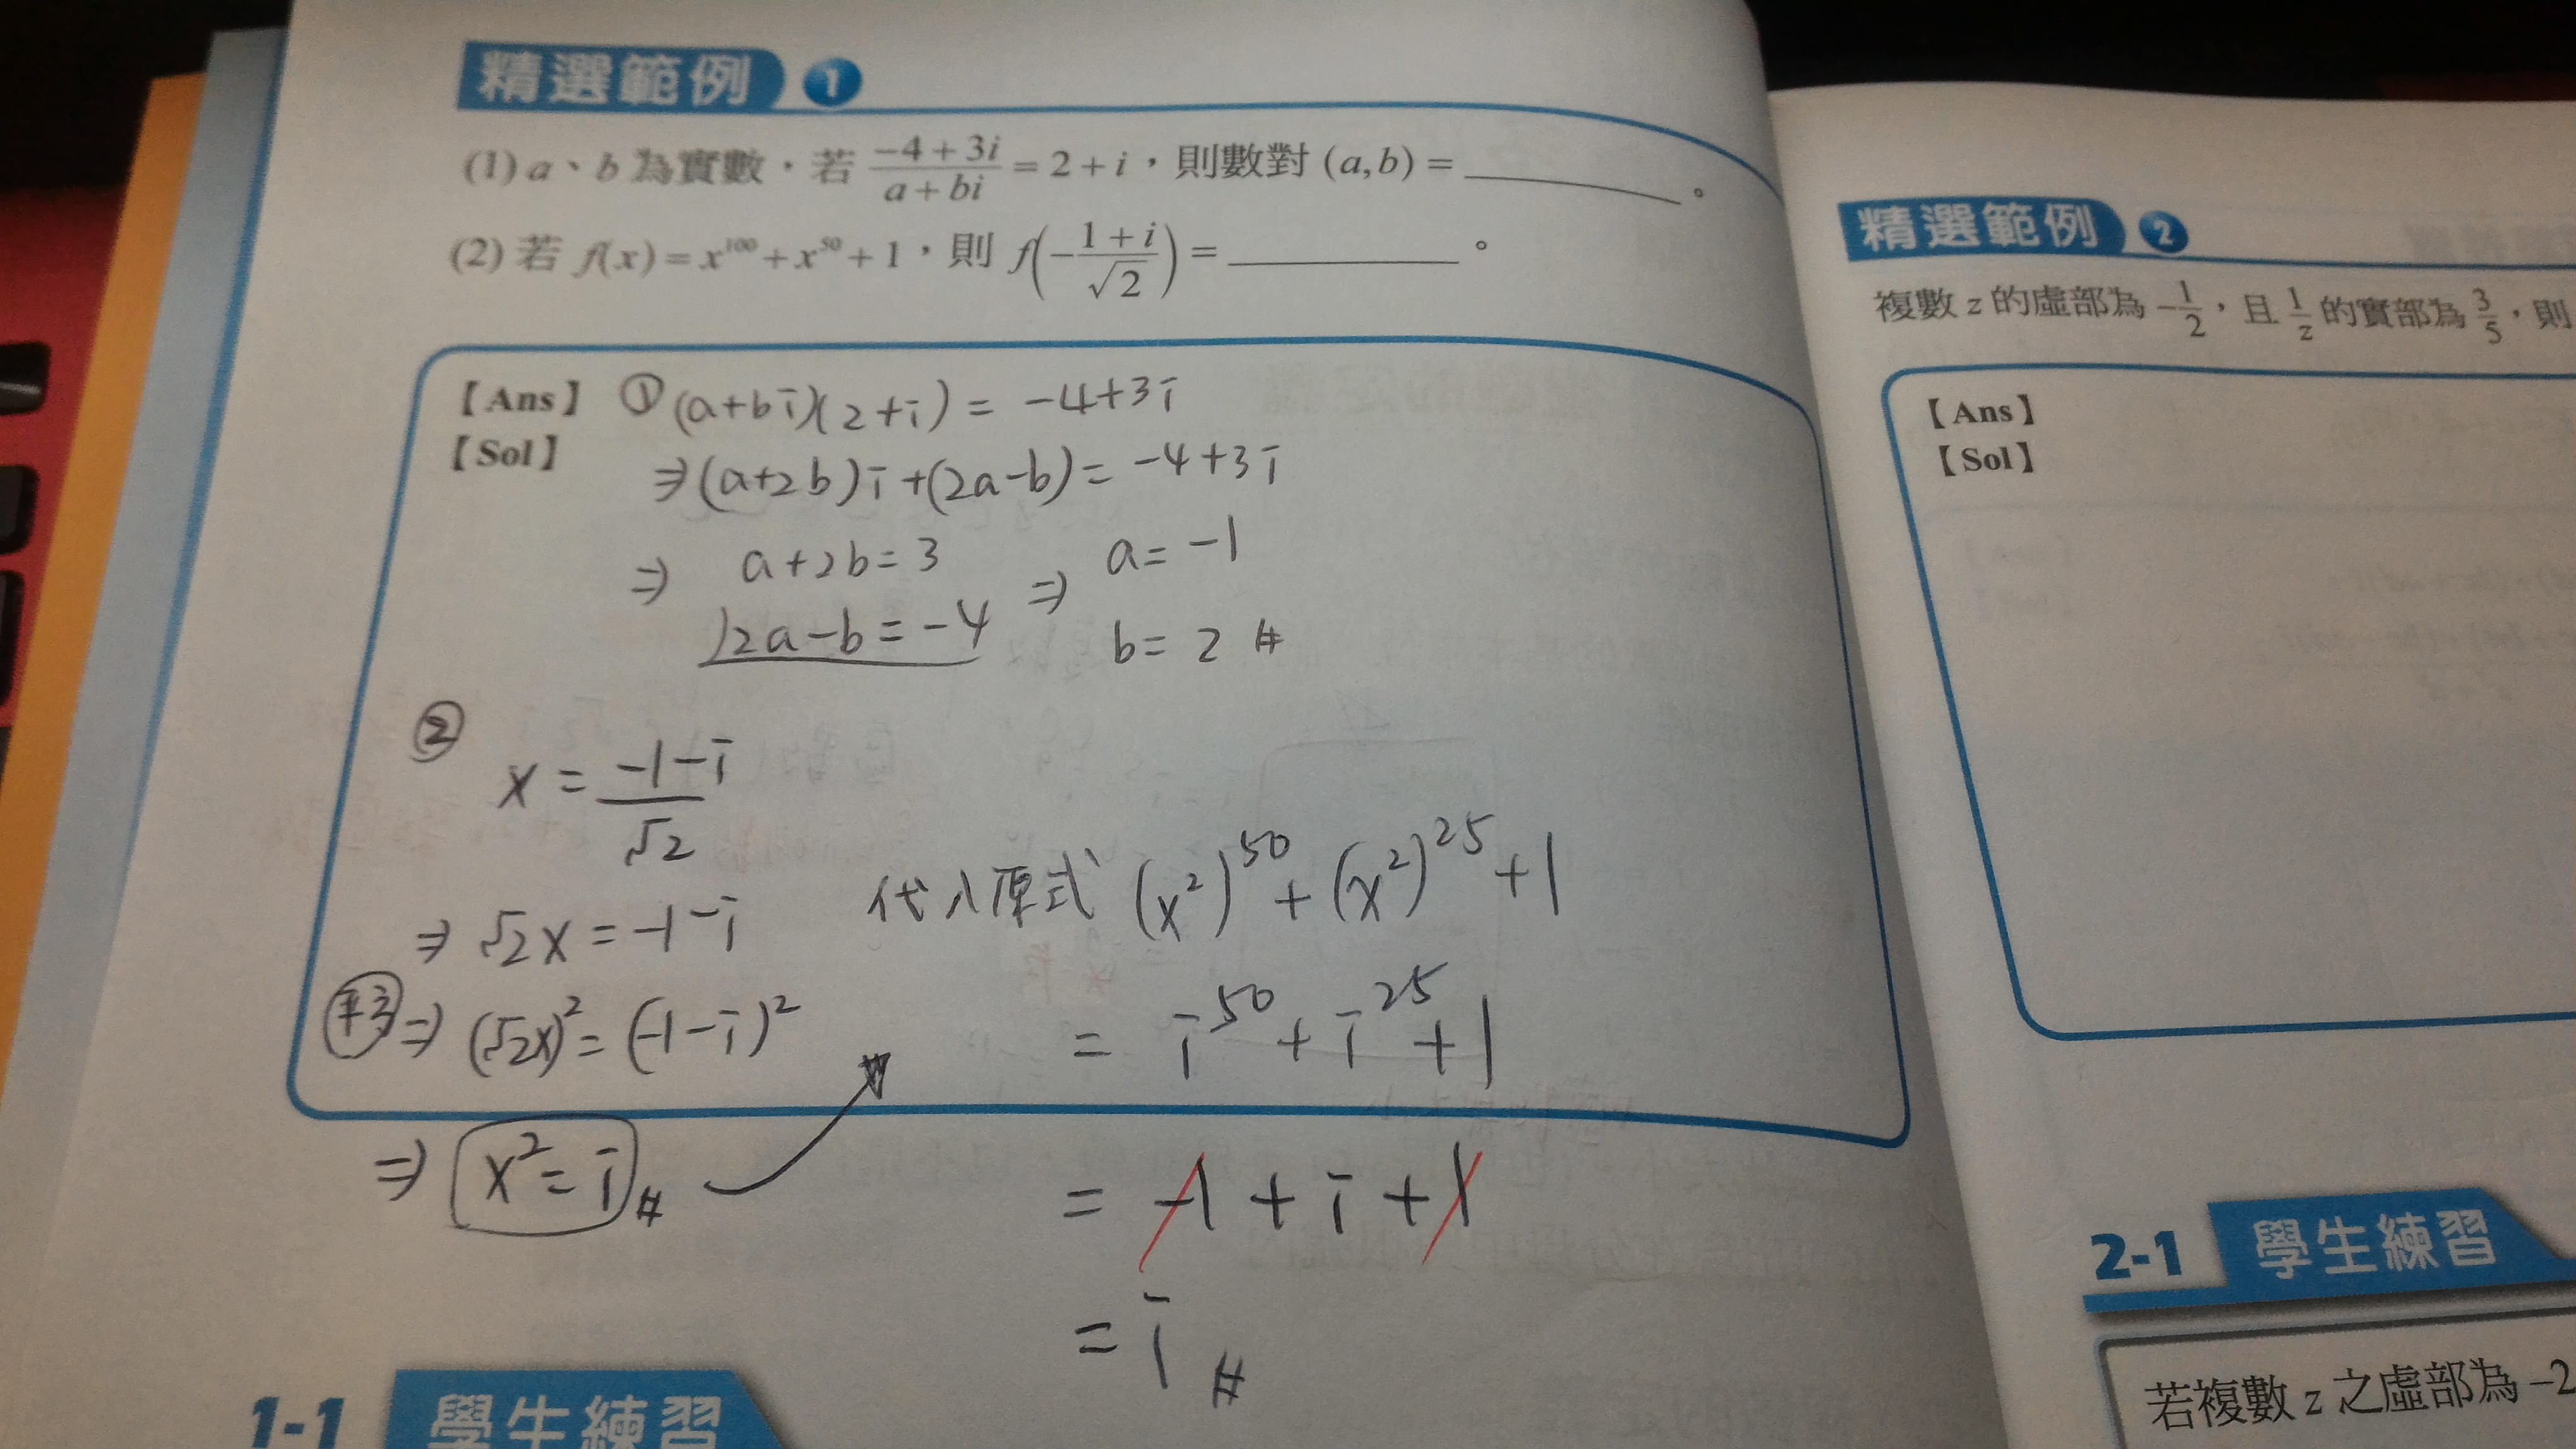 精選範例 1
(1) a、b 為實數，若 \frac{-4+3i}{a+bi} = 2+i，則數對 (a,b) = ________。
(2) 若 f(x) = x^{100} + x^{50} + 1，則 f(-\frac{1+i}{\sqrt{2}}) = ________。
【Ans】 ① (a+bi)(2+i) = -4+3i
【Sol】
⇒ (a+2b)i + (2a-b) = -4+3i
⇒ a+2b = 3 ⇒ a = -1
)2a-b = -4 b = 2 #
②
x = \frac{-1-i}{\sqrt{2}}
⇒ \sqrt{2}x = -1-i
平方 ⇒ (\sqrt{2}x)^2 = (-1-i)^2
⇒ x^2 = i #
代入原式 (x^2)^{50} + (x^2)^{25} + 1
= i^{50} + i^{25} + 1
= -1 + i + 1
= i #
1-1 學生練習
精選範例 2
複數 z 的虛部為 -\frac{1}{2}，且 \frac{1}{z} 的實部為 \frac{3}{5}，則
【Ans】
【Sol】
2-1 學生練習
若複數 z 之虛部為 -2